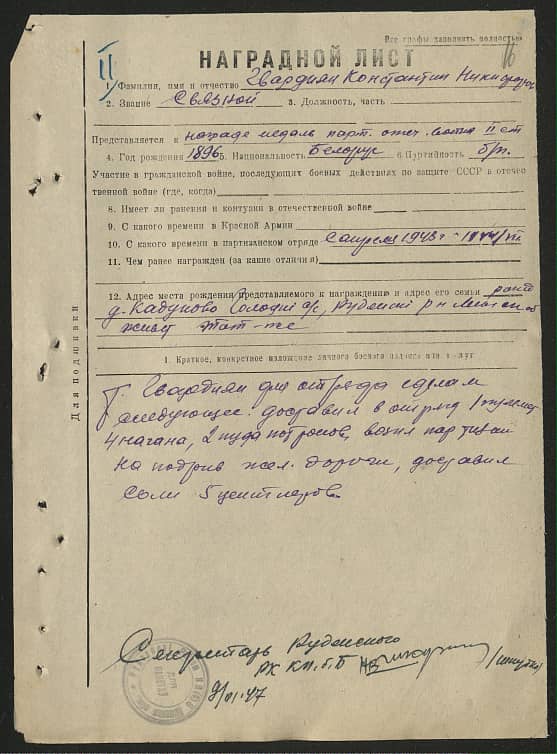 Все графы заполнить полностью
16
11
НАГРАДНОЙ ЛИСТ
1. Фамилия, имя и отчество Гвардиян Константин
2. Звание Связной 3. Должность, часть
Представляется к награде медаль парт. отеч. войны II ст
4. Год рождения 1896 5. Национальность Белорус 6 Партийность б/п.
Участие в гражданской войне, последующих боевых действиях по защите СССР в отечест-
венной войне (где, когда)
8. Имеет ли ранения и контузии в отечественной войне
9. С какого времени в Красной Армии
10. С какого времени в партизанском отряде С апреля 1943 г -
11. Чем ранее награжден (за какие отличия)
12. Адрес места рождения представляемого к награждению и адрес его семьи
д. с/с, Руденск р н
живут там-же
1. Краткое, конкретное изложение личного боевого подвига или заслуг
Т. Гвардиян для отряда сделал
следующее: доставил в отряд 1 пулемет
4 нагана, 2 пуда патронов, возил партизан
на подрыв жел. дороги, доставил
соли 5 центнеров.
Для подшивки
Секретарь Руденского
РК КП.б.Б